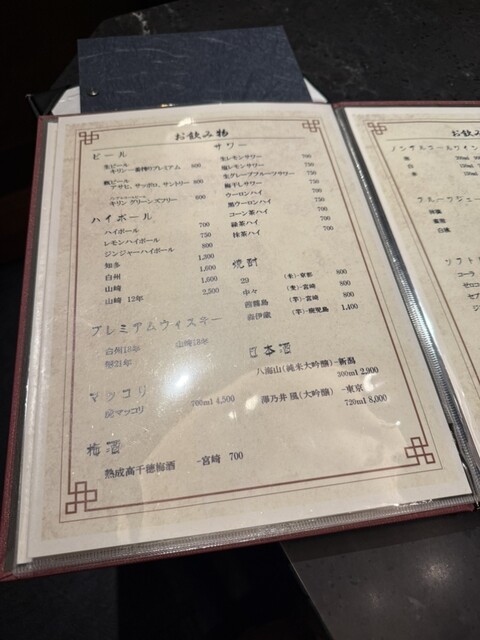 お飲み物
ビール
生ビール
キリン一番搾りプレミアム 800
瓶ビール
アサヒ、サッポロ、サントリー 800
キリン グリーンズフリー 800
ハイボール
ハイボール 700
レモンハイボール 750
ジンジャーハイボール 800
知多 1,300
白州 1,000
山崎 1,000
山崎 12年 2,500
プレミアムウィスキー
白州18年 山崎18年
響21年
マッコリ
虎マッコリ 700ml 4,500
梅酒
熟成高千穂梅酒 -宮崎 700
サワー
生レモンサワー 700
塩レモンサワー 750
生グレープフルーツサワー 750
梅干しサワー 750
ウーロンハイ 700
黒ウーロンハイ 750
コーン茶ハイ 700
緑茶ハイ 700
抹茶ハイ 750
焼酎
29 (米)-京都 800
中々 (麦)-宮崎 800
(芋)-宮崎 800
森伊蔵 (芋)-鹿児島 1,400
日本酒
八海山(純米大吟醸) -新潟
300ml 2,900
澤乃井 凰(大吟醸) -東京
720ml 8,000
お飲み物
ノンアルコールワイン
赤
白
フルーツジュー
ソフト
コーラ
ゼロコ
ジ